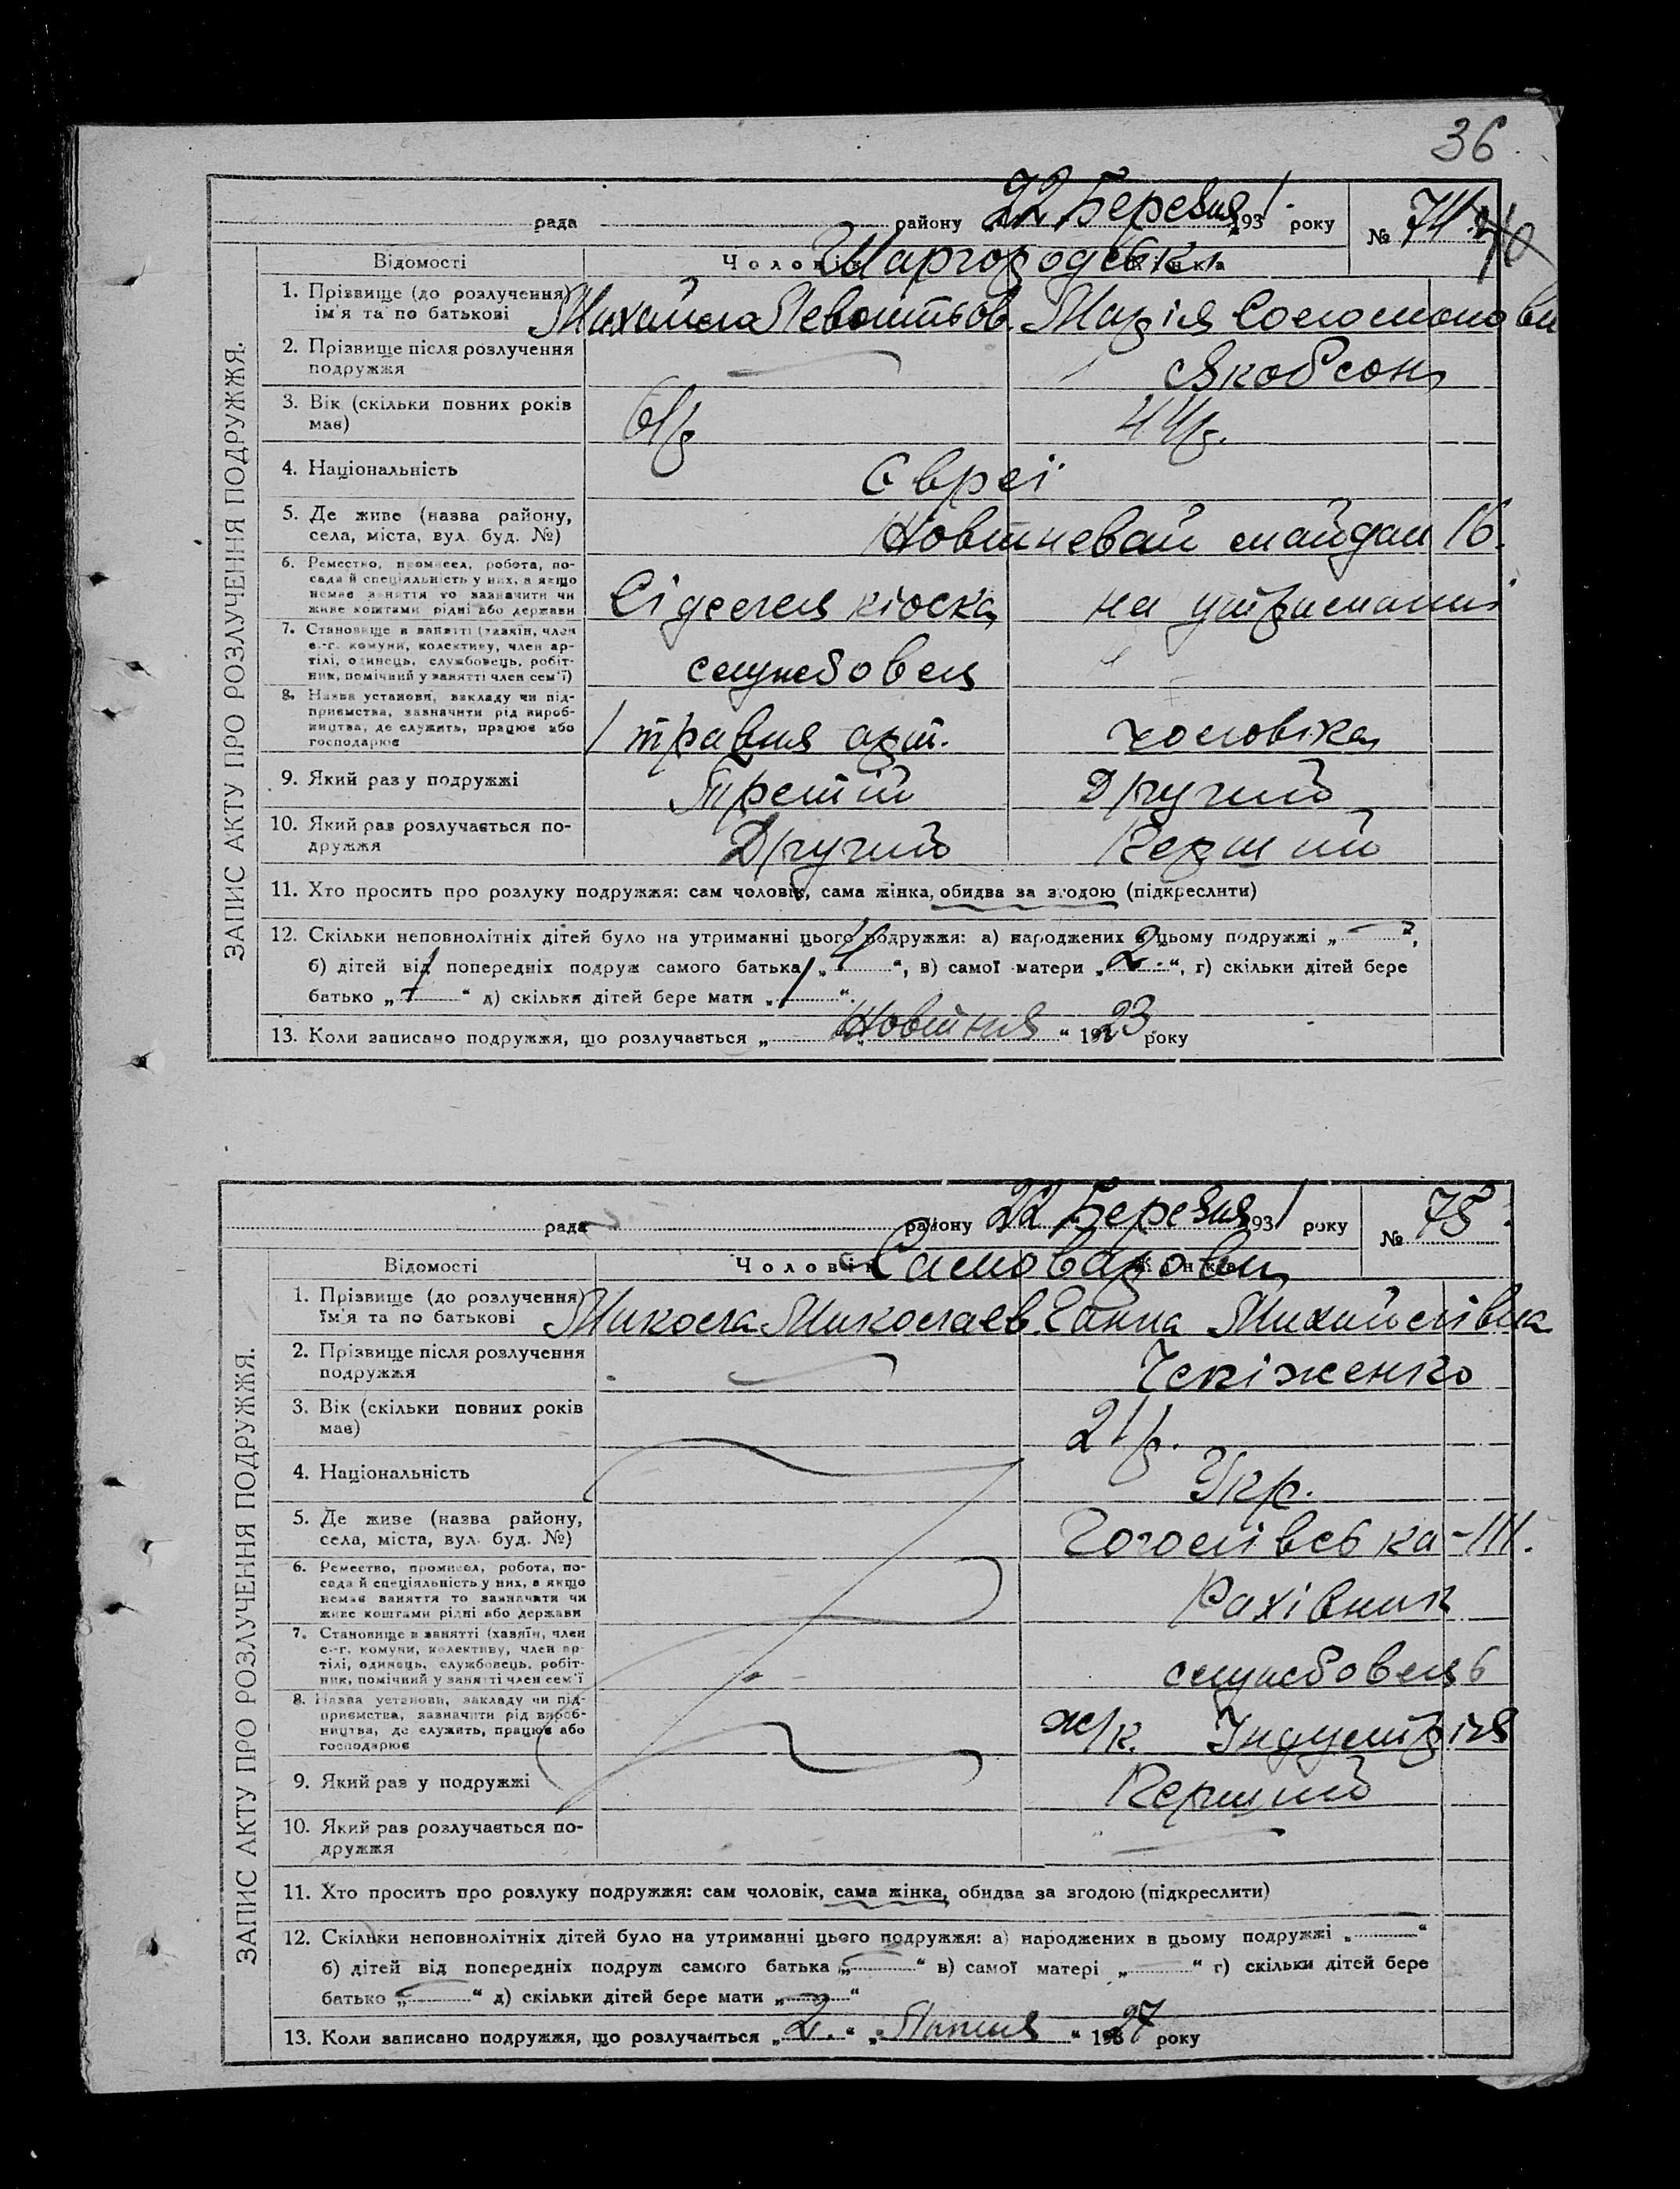 36
рада району 22 Березня 1931 року № 74
Відомості Чоловік Жінка
Шаргородські
ЗАПИС АКТУ ПРО РОЗЛУЧЕННЯ ПОДРУЖЖЯ.
1. Прізвище (до розлучення)
ім'я та по батькові
Михайло Мария Соломоновн
2. Прізвище після розлучення
подружжя
Якобсон
3. Вік (скільки повних років
має)
61 р 44 р.
4. Національність
Євреі
5. Де живе (назва району,
села, міста, вул. буд. №)
Новтневай майдан 16.
6. Ремество, промисел, робота, по-
сада й спеціяльність у них, а якщо
немає заняття то зазначити чи
живе коштами рідні або держави
Сіделец кіоска на утриманні
7. Становище в занятті (хазяїн, член
с.-г. комуни, колективу, член ар-
тілі, одинець, службовець, робіт-
ник, помічний у занятті член сем'ї)
службовец
8. Назва установи, закладу чи під-
приємства, зазначити рід вироб-
ництва, де служить, працює або
господарює
1 травня арт. чоловіка
9. Який раз у подружжі
Третій Другий
10. Який раз розлучається по-
дружжя
Другий Перший
11. Хто просить про розлуку подружжя: сам чоловік, сама жінка, обидва за згодою (підкреслити)
12. Скільки неповнолітніх дітей було на утриманні цього подружжя: а) народжених в цьому подружжі „ — “,
б) дітей від попередніх подруж самого батька „ “, в) самої матери „ 2. “, г) скільки дітей бере
батько „ “ д) скільки дітей бере мати „ 1 “.
13. Коли записано подружжя, що розлучається „ “ Новтня “ 1923 року
рада району 22 Березня 1931 року № 75
Відомості Чоловік Жінка
Самоварови
ЗАПИС АКТУ ПРО РОЗЛУЧЕННЯ ПОДРУЖЖЯ.
1. Прізвище (до розлучення)
їм'я та по батькові
Микола Миколаев. Ганна Михайлівна
2. Прізвище після розлучення
подружжя
3. Вік (скільки повних років
має)
21 р.
4. Національність
Укр.
5. Де живе (назва району,
села, міста, вул. буд. №)
Гоголівська - 111.
6. Ремество, промисел, робота, по-
сада й спеціяльність у них, а якщо
немає заняття то зазначити чи
живе коштами рідні або держави
Рахівник
7. Становище в занятті (хазяїн, член
с.-г. комуни, колективу, член ар-
тілі, одинець, службовець, робіт-
ник, помічний у занятті член сем'ї
службовець
8. Назва установи, закладу чи під-
приємства, зазначити рід вироб-
ництва, де служить, працює або
господарює
ж/к. Індустрія
9. Який раз у подружжі
Перший
10. Який раз розлучається по-
дружжя
11. Хто просить про розлуку подружжя: сам чоловік, сама жінка, обидва за згодою (підкреслити)
12. Скільки неповнолітніх дітей було на утриманні цього подружжя: а) народжених в цьому подружжі „ “
б) дітей від попередніх подруж самого батька „ — “ в) самої матері „ — “ г) скільки дітей бере
батько „ — “ д) скільки дітей бере мати „ — “
13. Коли записано подружжя, що розлучається „ 2. “ „ Липня “ 1927 року